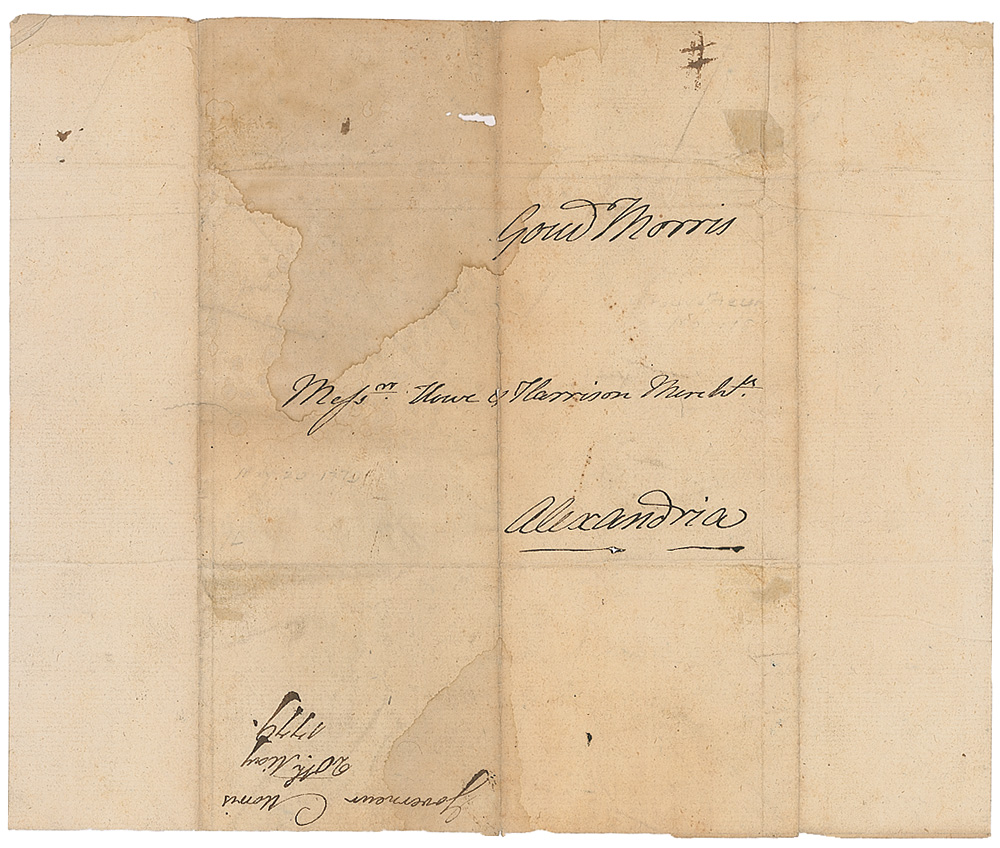 Gouv Morris
Messrs. Howe & Harrison Mercht.s
Alexandria
Governeur Morris
20th. May
1779.